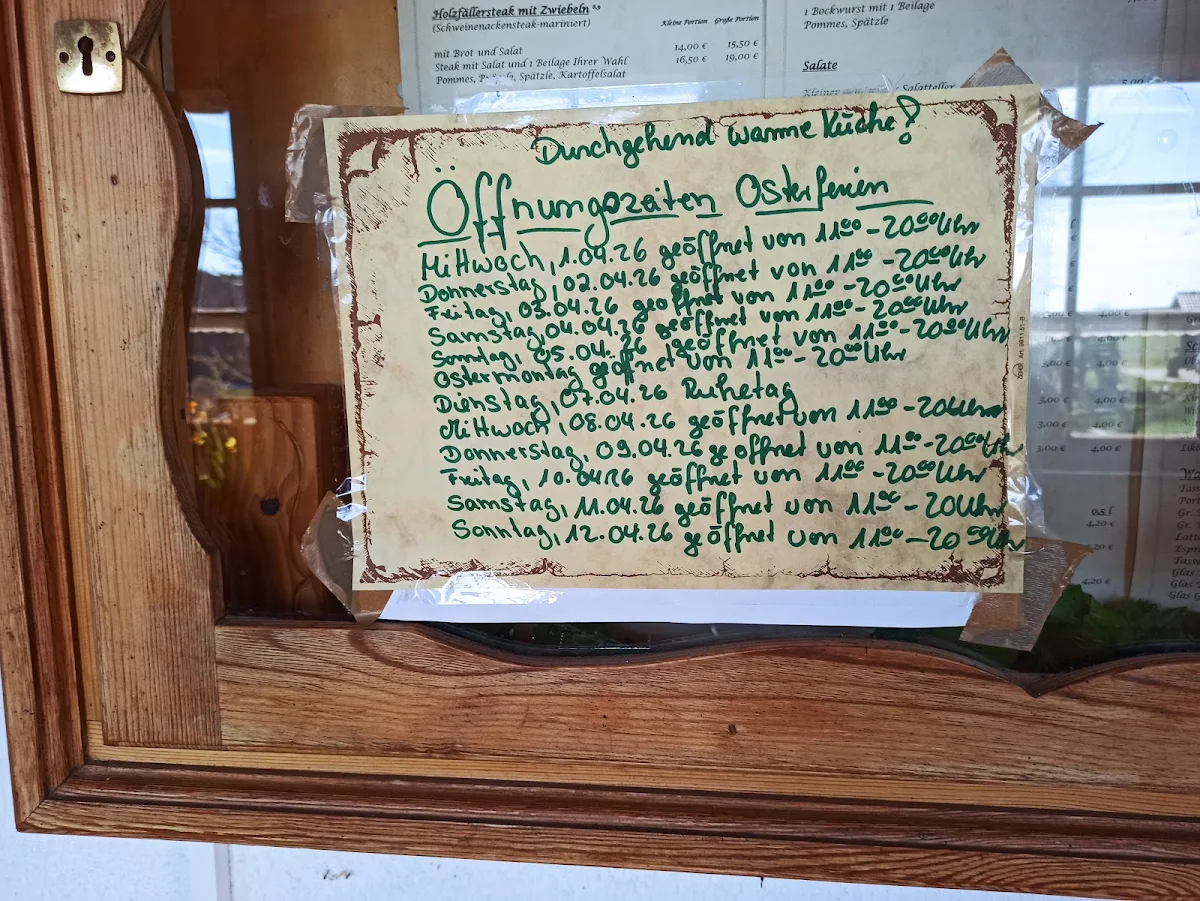 Holzfällersteak mit Zwiebeln
(Schweinenackensteak-mariniert)
Kleine Portion Große Portion
mit Brot und Salat 14,00 € 15,50 €
Steak mit Salat und 1 Beilage Ihrer Wahl 16,50 € 19,00 €
Pommes, Spätzle, Kartoffelsalat
1 Bockwurst mit 1 Beilage
Pommes, Spätzle
Salate
Kleiner Salatteller 5,00
Durchgehend warme Küche!
Öffnungszeiten Osterferien
Mittwoch, 1.04.26 geöffnet von 11⁰⁰ - 20⁰⁰ Uhr
Donnerstag, 02.04.26 geöffnet von 11⁰⁰ - 20⁰⁰ Uhr
Freitag, 03.04.26 geöffnet von 11⁰⁰ - 20⁰⁰ Uhr
Samstag, 04.04.26 geöffnet von 11⁰⁰ - 20⁰⁰ Uhr
Sonntag, 05.04.26 geöffnet von 11⁰⁰ - 20⁰⁰ Uhr
Ostermontag geöffnet von 11⁰⁰ - 20⁰⁰ Uhr
Dienstag, 07.04.26 Ruhetag
Mittwoch, 08.04.26 geöffnet von 11⁰⁰ - 20 Uhr
Donnerstag, 09.04.26 geöffnet von 11⁰⁰ - 20⁰⁰ Uhr
Freitag, 10.04.26 geöffnet von 11⁰⁰ - 20⁰⁰ Uhr
Samstag, 11.04.26 geöffnet von 11⁰⁰ - 20 Uhr
Sonntag, 12.04.26 geöffnet von 11⁰⁰ - 20⁰⁰ Uhr
4,00 €
4,00 €
5,00 € 4,00 €
3,00 € 4,00 €
3,00 € 4,00 €
3,00 € 4,00 €
0,5 l
4,20 €
4,20 €
4,20 €